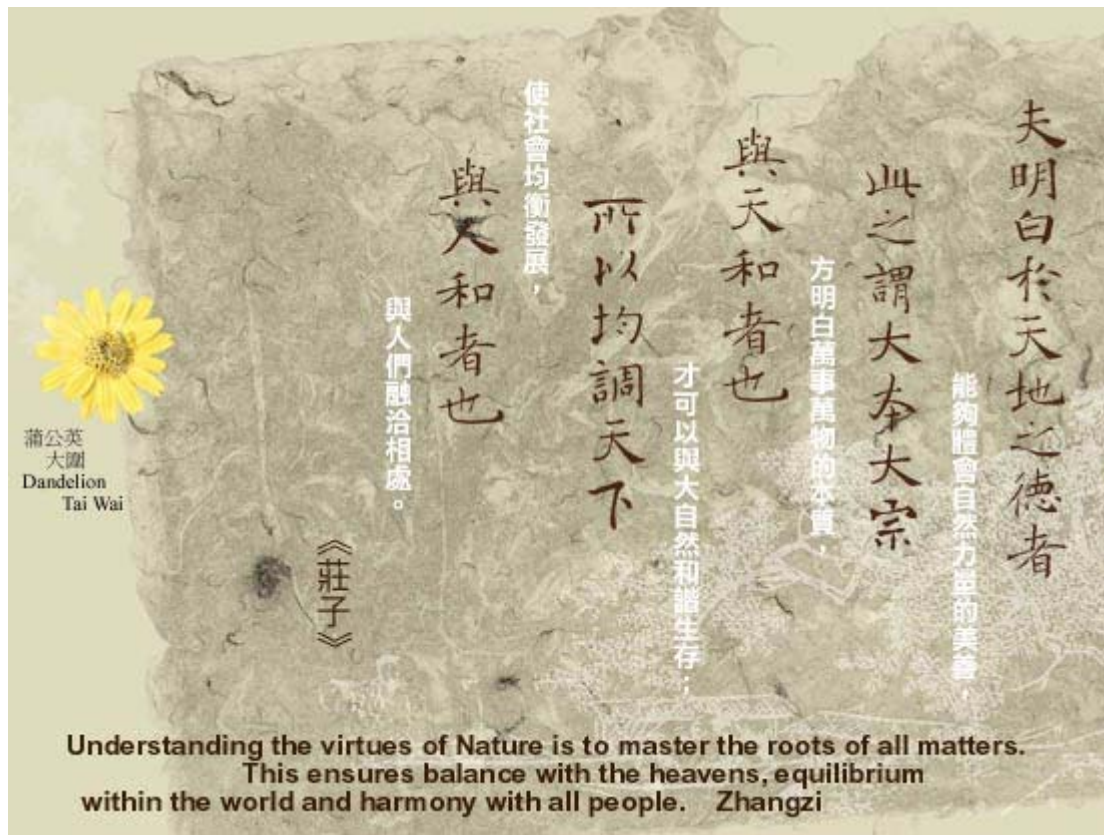 夫明白於天地之德者
能夠體會自然力量的美善，
此之謂大本大宗
方明白萬事萬物的本質，
與天和者也
才可以與大自然和諧生存；
所以均調天下
使社會均衡發展，
與人和者也
與人們融洽相處。
《莊子》
蒲公英
大圍
Dandelion
Tai Wai
Understanding the virtues of Nature is to master the roots of all matters.
This ensures balance with the heavens, equilibrium
within the world and harmony with all people. Zhangzi